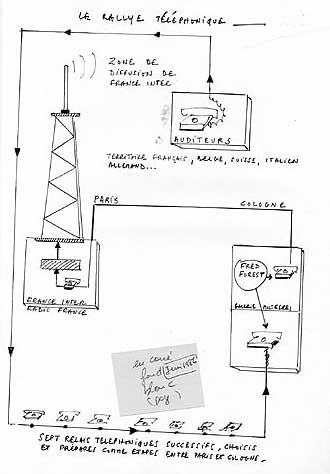 LE RALLYE TÉLÉPHONIQUE
ZONE DE
DIFFUSION DE
FRANCE INTER
AUDITEURS
TERRITOIRE FRANÇAIS, BELGE, SUISSE, ITALIEN
ALLEMAND...
PARIS
COLOGNE
FRED
FOREST
FRANCE INTER
RADIO FRANCE
GALERIE
en
SEPT RELAIS TELEPHONIQUES SUCCESSIFS, CHOISIS
ET PREPARES COMME ETAPES ENTRE PARIS ET COLOGNE.